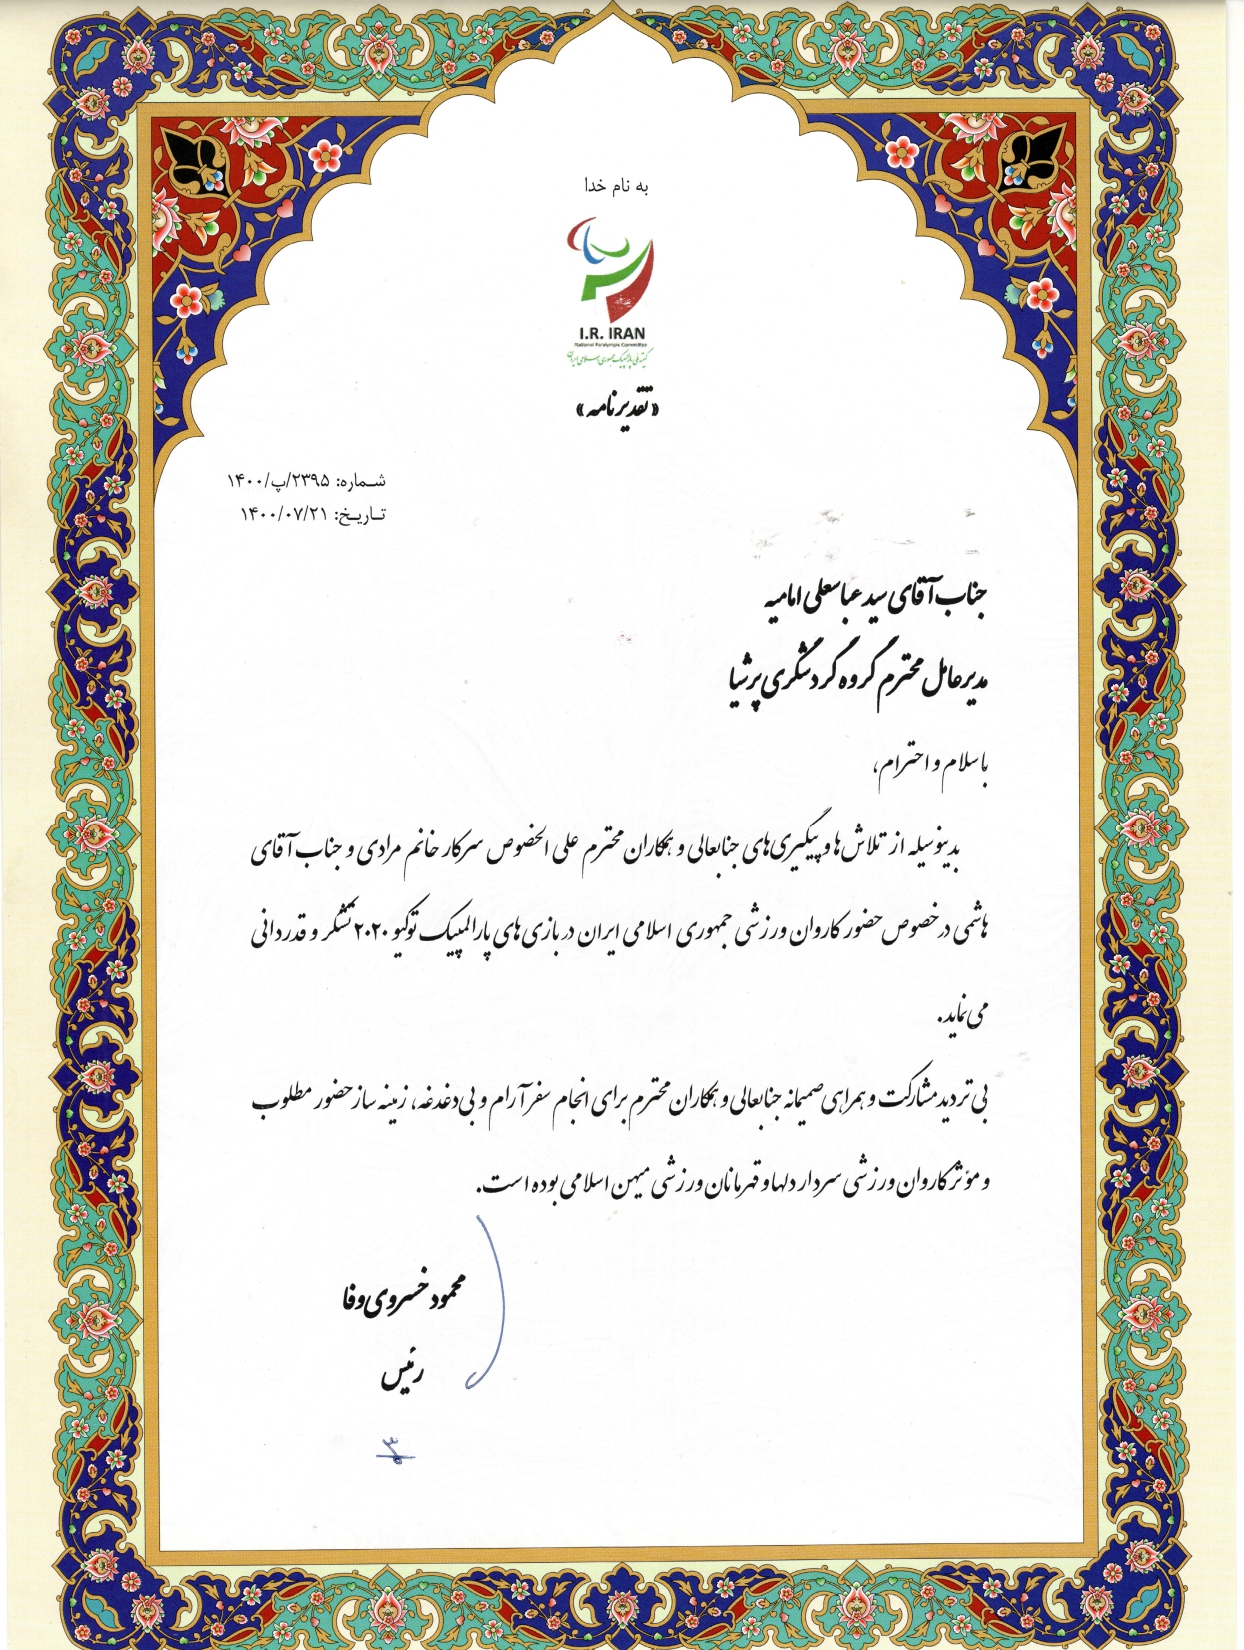 به نام خدا
I.R. IRAN
National Paralympic Committee
کمیته ملی پارالمپیک جمهوری اسلامی ایران
«تقدیرنامه»
شماره: ۲۳۹۵/پ/۱۴۰۰
تاریخ: ۱۴۰۰/۰۷/۲۱
جناب آقای سید عباسعلی امامیه
مدیرعامل محترم گروه گردشگری پرشیا
با سلام و احترام،
بدینوسیله از تلاش‌ها و پیگیری‌های جنابعالی و همکاران محترم علی الخصوص سرکار خانم مرادی و جناب آقای
هاشمی در خصوص حضور کاروان ورزشی جمهوری اسلامی ایران در بازی های پارالمپیک توکیو ۲۰۲۰ تشکر و قدردانی
می نماید.
بی تردید مشارکت و همراهی صمیمانه جنابعالی و همکاران محترم برای انجام سفر آرام و بی دغدغه، زمینه ساز حضور مطلوب
و مؤثر کاروان ورزشی سردار دلها و قهرمانان ورزشی میهن اسلامی بوده است.
محمود خسروی وفا
رئیس